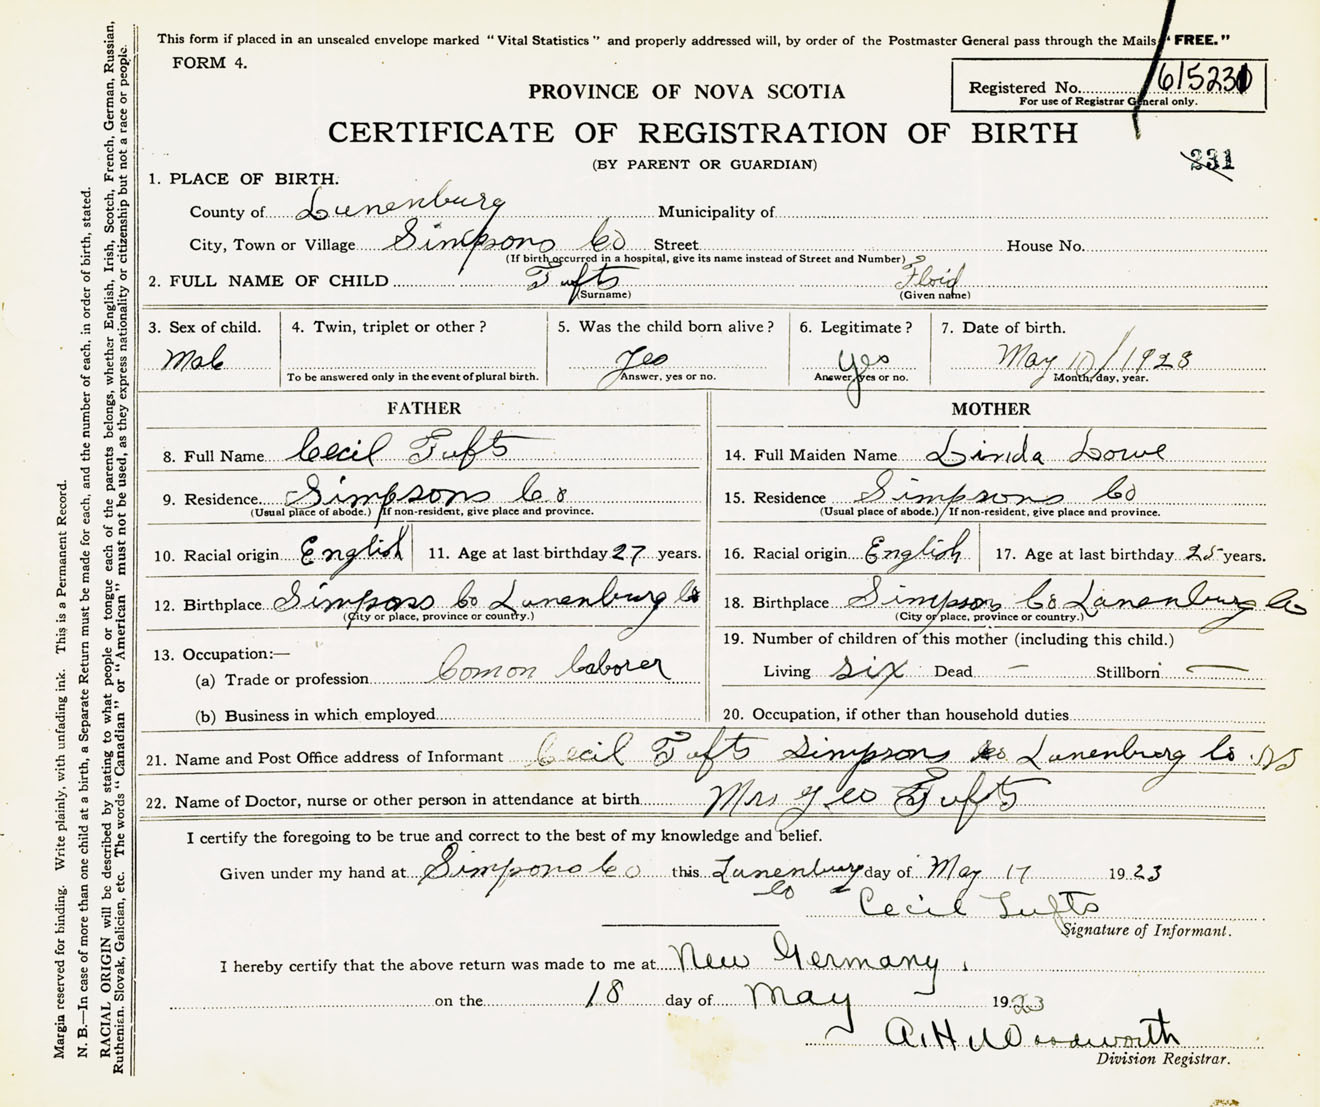 This form if placed in an unsealed envelope marked "Vital Statistics" and properly addressed will, by order of the Postmaster General pass through the Mails "FREE."
FORM 4.
Registered No. 615231
For use of Registrar General only.
PROVINCE OF NOVA SCOTIA
CERTIFICATE OF REGISTRATION OF BIRTH
(BY PARENT OR GUARDIAN)
231
1. PLACE OF BIRTH.
County of Lunenburg Municipality of
City, Town or Village Simpsons Co Street House No.
(If birth occurred in a hospital, give its name instead of Street and Number)
2. FULL NAME OF CHILD Tufts Floid
(Surname) (Given name)
3. Sex of child. 4. Twin, triplet or other? 5. Was the child born alive? 6. Legitimate? 7. Date of birth.
Male Yes yes May 10/1923
To be answered only in the event of plural birth. Answer, yes or no. Answer, yes or no. Month, day, year.
FATHER MOTHER
8. Full Name Cecil Tufts 14. Full Maiden Name Linda Lowe
9. Residence Simpsons Co 15. Residence Simpsons Co
(Usual place of abode.) If non-resident, give place and province. (Usual place of abode.) If non-resident, give place and province.
10. Racial origin English 11. Age at last birthday 27 years. 16. Racial origin English 17. Age at last birthday 25 years.
12. Birthplace Simpsons Co Lunenburg Co 18. Birthplace Simpsons Co Lunenburg Co
(City or place, province or country.) (City or place, province or country.)
13. Occupation:— 19. Number of children of this mother (including this child.)
(a) Trade or profession Comon Laborer Living six Dead — Stillborn —
(b) Business in which employed 20. Occupation, if other than household duties
21. Name and Post Office address of Informant Cecil Tufts Simpsons Co Lunenburg Co NS
22. Name of Doctor, nurse or other person in attendance at birth Mrs Geo Tufts
I certify the foregoing to be true and correct to the best of my knowledge and belief.
Given under my hand at Simpsons Co this Lunenburg Co day of May 17 1923
Cecil Tufts
Signature of Informant.
I hereby certify that the above return was made to me at New Germany,
on the 18 day of May 1923
A. H. Woodworth
Division Registrar.
Margin reserved for binding. Write plainly, with unfading ink. This is a Permanent Record.
N. B.—In case of more than one child at a birth, a Separate Return must be made for each, and the number of each, in order of birth, stated.
RACIAL ORIGIN will be described by stating to what people or tongue each of the parents belongs, whether English, Irish, Scotch, French, German, Russian,
Ruthenian, Slovak, Galician, etc. The words "Canadian" or "American" must not be used, as they express nationality or citizenship but not a race or people.